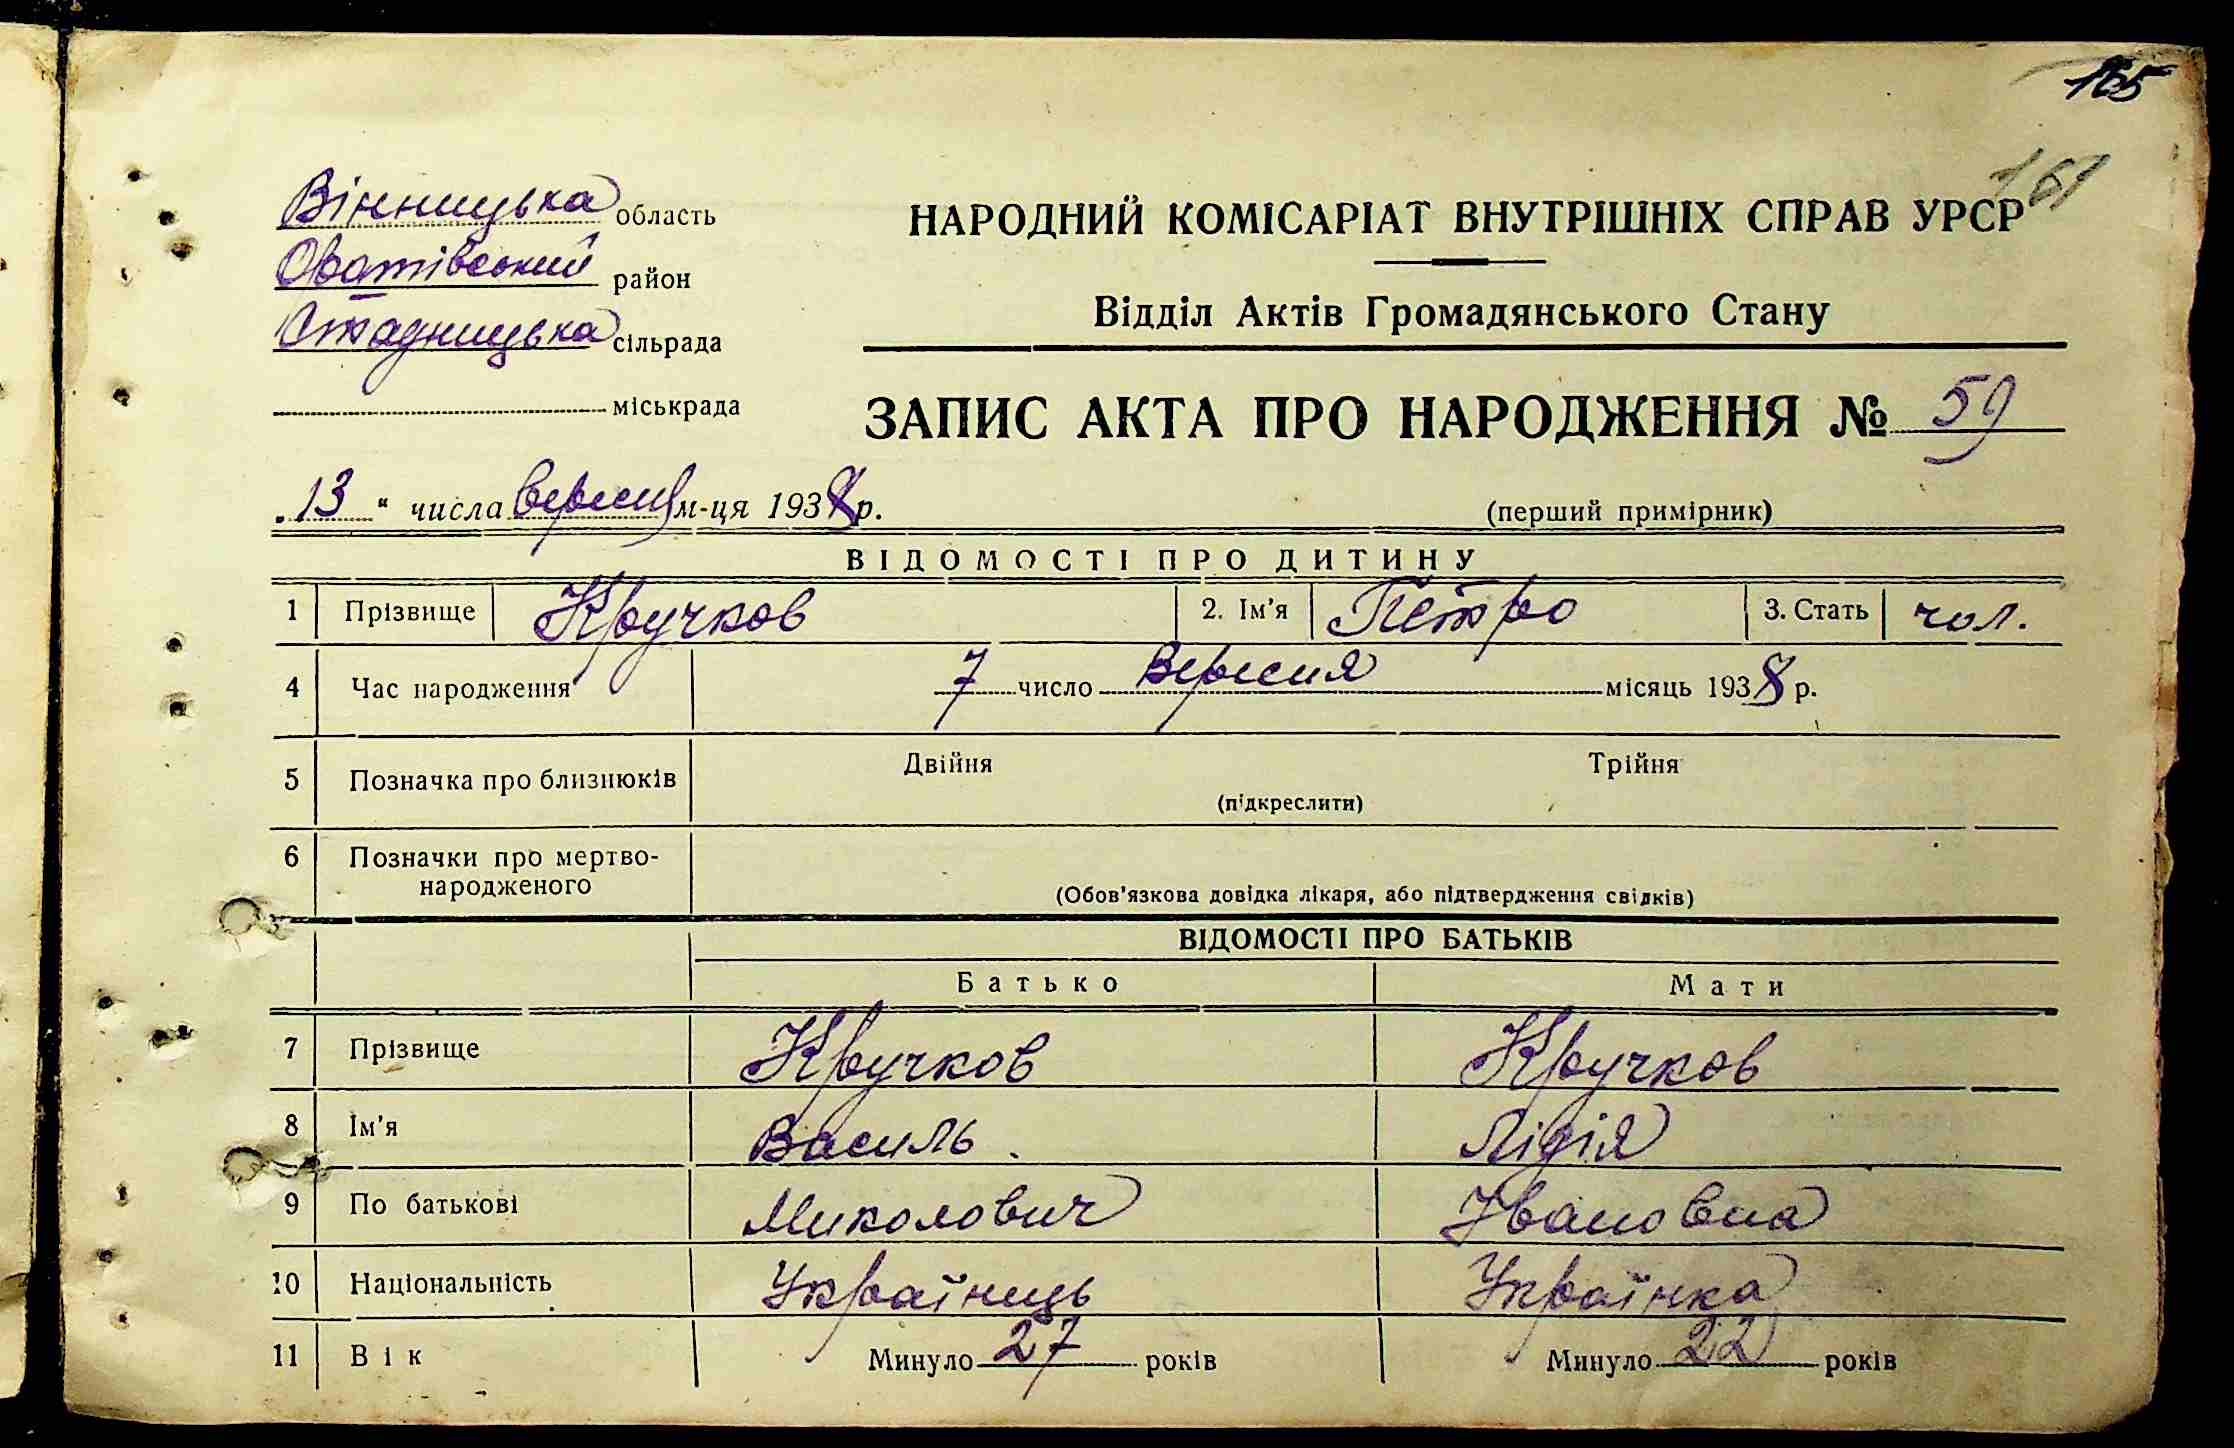 165
161
Вінницька область
Оратівський район
Стадницька сільрада
міськрада
НАРОДНИЙ КОМІСАРІАТ ВНУТРІШНІХ СПРАВ УРСР
Відділ Актів Громадянського Стану
ЗАПИС АКТА ПРО НАРОДЖЕННЯ № 59
„13“ числа вересня м-ця 1938 р.
(перший примірник)
ВІДОМОСТІ ПРО ДИТИНУ
1 Прізвище Кручков 2. Ім'я Петро 3. Стать чол.
4 Час народження 7 число Вересня місяць 1938 р.
5 Позначка про близнюків Двійня Трійня
(підкреслити)
6 Позначки про мертво-
народженого
(Обов'язкова довідка лікаря, або підтвердження свідків)
ВІДОМОСТІ ПРО БАТЬКІВ
Батько Мати
7 Прізвище Кручков Кручков
8 Ім'я Василь. Лідія
9 По батькові Миколович Івановна
10 Національність Україниць Українка
11 Вік Минуло 27 років Минуло 22 років